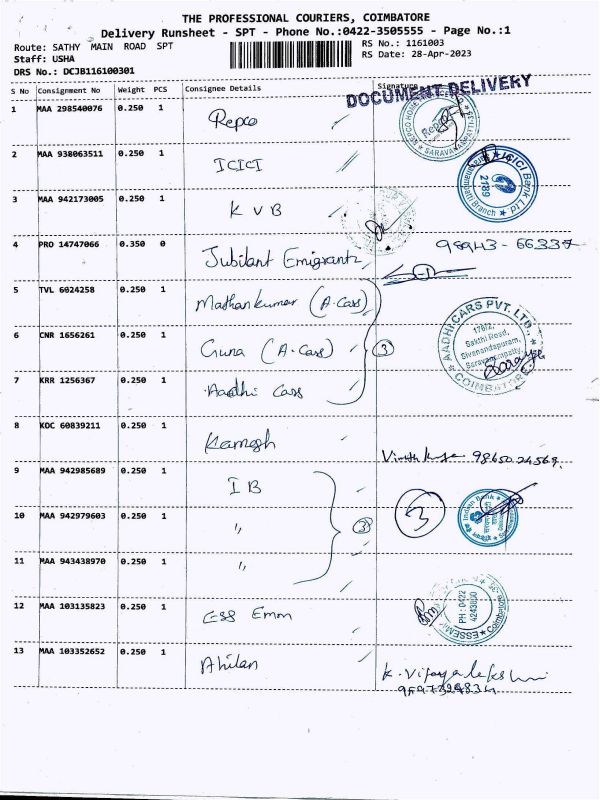 THE PROFESSIONAL COURIERS, COIMBATORE
Delivery Runsheet - SPT - Phone No.:0422-3505555 - Page No.:1
Route: SATHY MAIN ROAD SPT
RS No.: 1161003
Staff: USHA
RS Date: 28-Apr-2023
DRS No.: DCJB116100301
S No Consignment No Weight PCS Consignee Details Signature
DOCUMENT DELIVERY
1 MAA 298540076 0.250 1 Repco
SARAVANAMPATTI
2 MAA 938063511 0.250 1 ICICI
ICICI Bank Ltd
2189
Branch
3 MAA 942173005 0.250 1 KVB
4 PRO 14747066 0.350 0 Jubilant Emigrantz
98943-66337
5 TVL 6024258 0.250 1 Mathankumar (A-Cars)
6 CNR 1656261 0.250 1 Guna (A-Cars) 3
AADHI CARS PVT. LTD.,
178/2,
Sakthi Road,
Sivanandapuram,
Saravanampatty,
COIMBATORE
7 KRR 1256367 0.250 1 Aadhi Cars
8 KOC 60839211 0.250 1 Kamesh
98650 24569.
9 MAA 942985689 0.250 1 IB
10 MAA 942979603 0.250 1 " 3 3
Indian Bank
11 MAA 943438970 0.250 1 "
12 MAA 103135823 0.250 1 Ess Emm
PH : 0422
4243800
Coimbatore
13 MAA 103352652 0.250 1 Ahilan
K. Vijayalekshmi